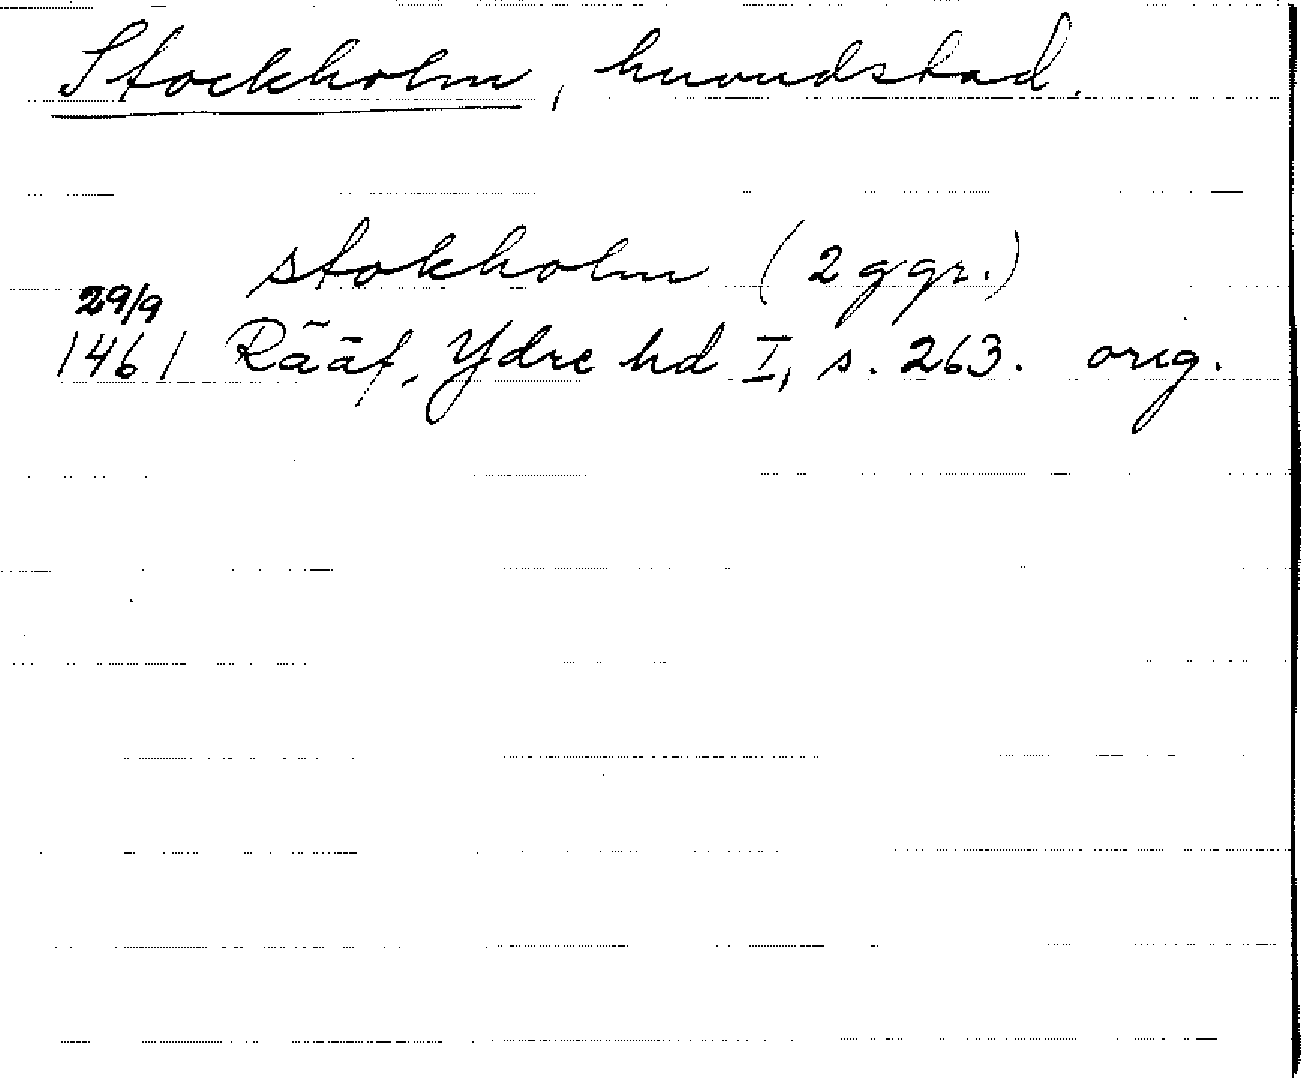 Stockholm, huvudstad.
stokholm (2 ggr.)
29/9
1461 Rääf, Ydre hd I, s. 263. orig.